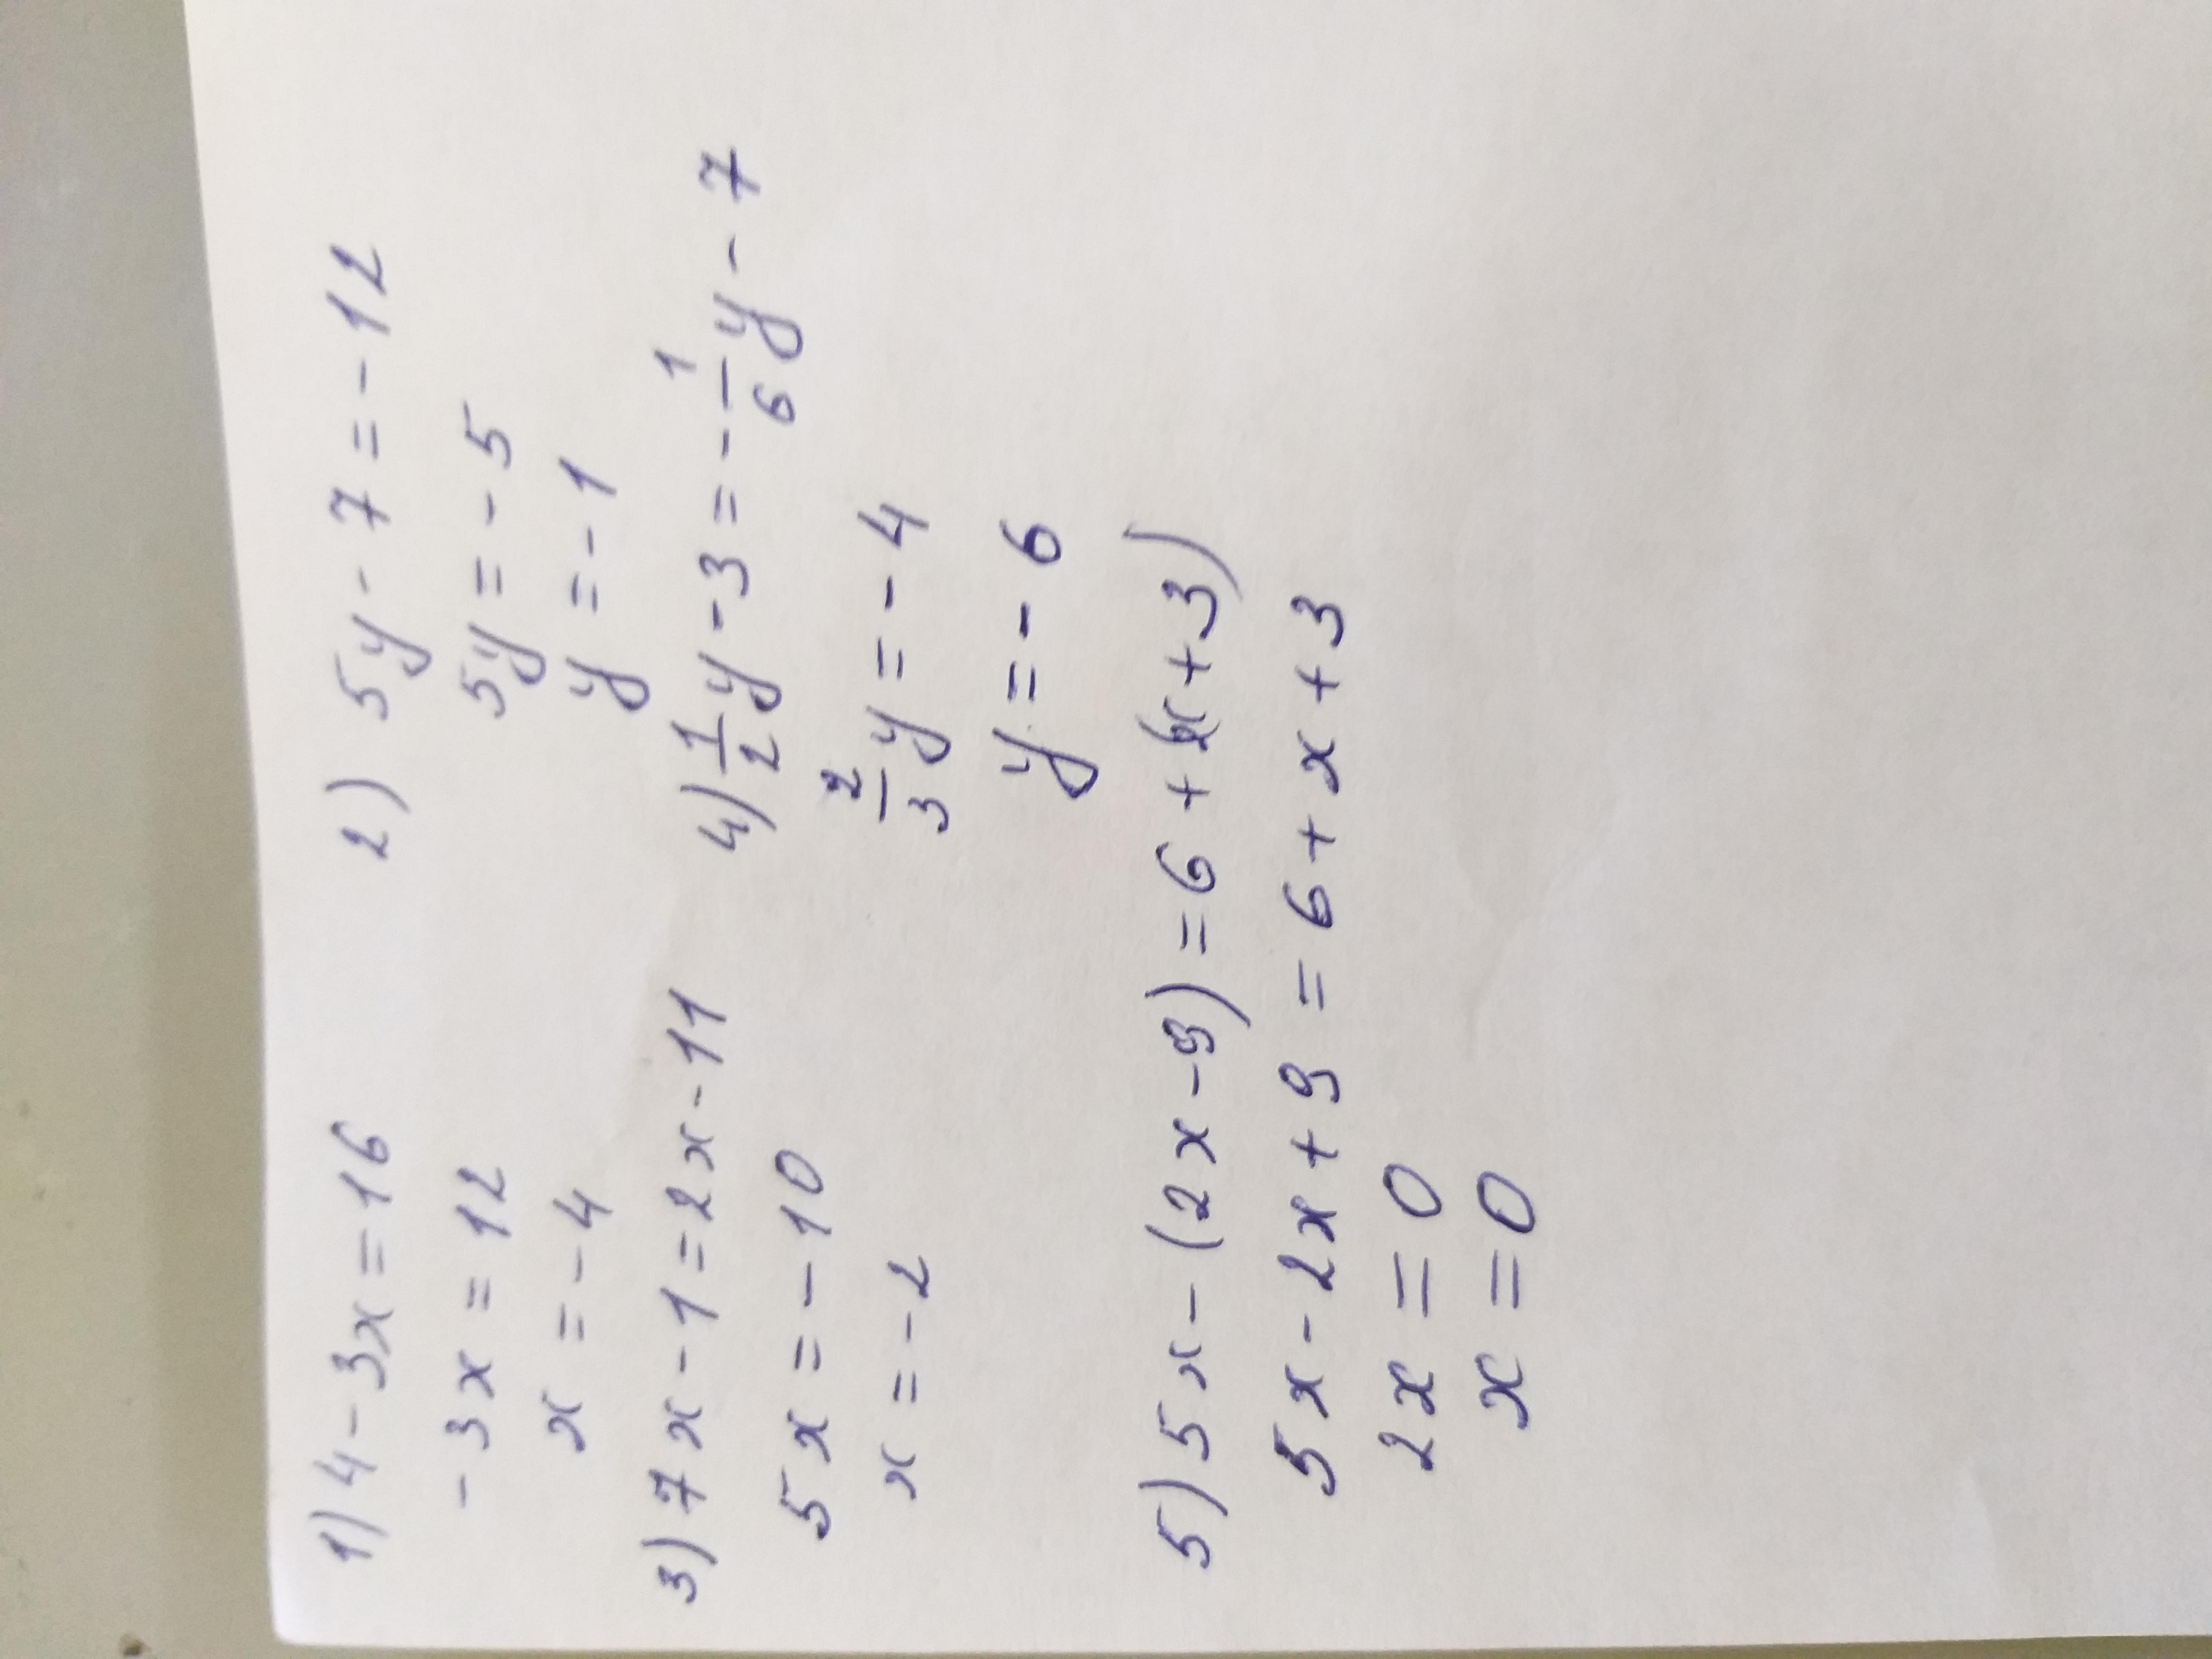 1) 4 - 3x = 16
- 3x = 12
x = - 4
2) 5y - 7 = - 12
5y = - 5
y = - 1
3) 7x - 1 = 2x - 11
5x = - 10
x = - 2
4) 1/2 y - 3 = - 1/6 y - 7
2/3 y = - 4
y = - 6
5) 5x - (2x - 9) = 6 + (x + 3)
5x - 2x + 9 = 6 + x + 3
2x = 0
x = 0